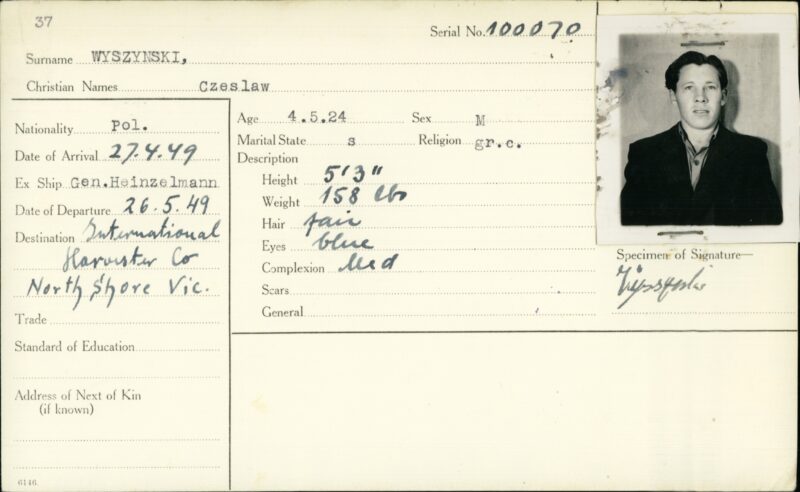 37
Serial No. 100070
Surname WYSZYNSKI,
Christian Names Czeslaw
Nationality Pol.
Date of Arrival 27.4.49
Ex Ship Gen.Heinzelmann
Date of Departure 26.5.49
Destination International
Harvester Co
North Shore Vic.
Trade
Standard of Education
Address of Next of Kin
(if known)
6146
Age 4.5.24 Sex M
Marital State s Religion gr.c.
Description
Height 5'3"
Weight 158 lbs
Hair fair
Eyes blue
Complexion Med
Scars
General
Specimen of Signature—